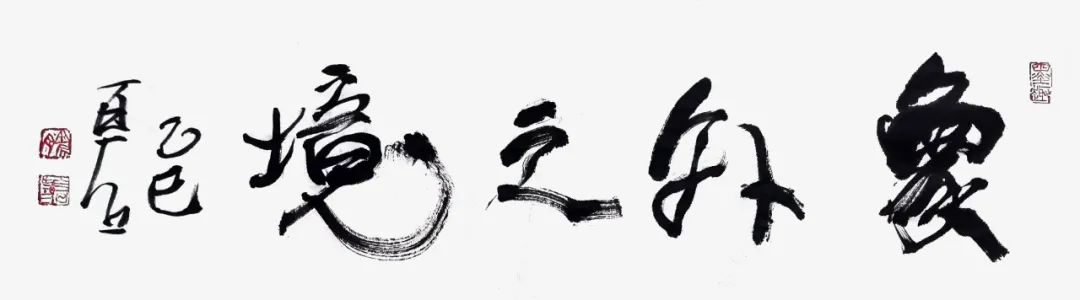 象外之境
乙巳
夏